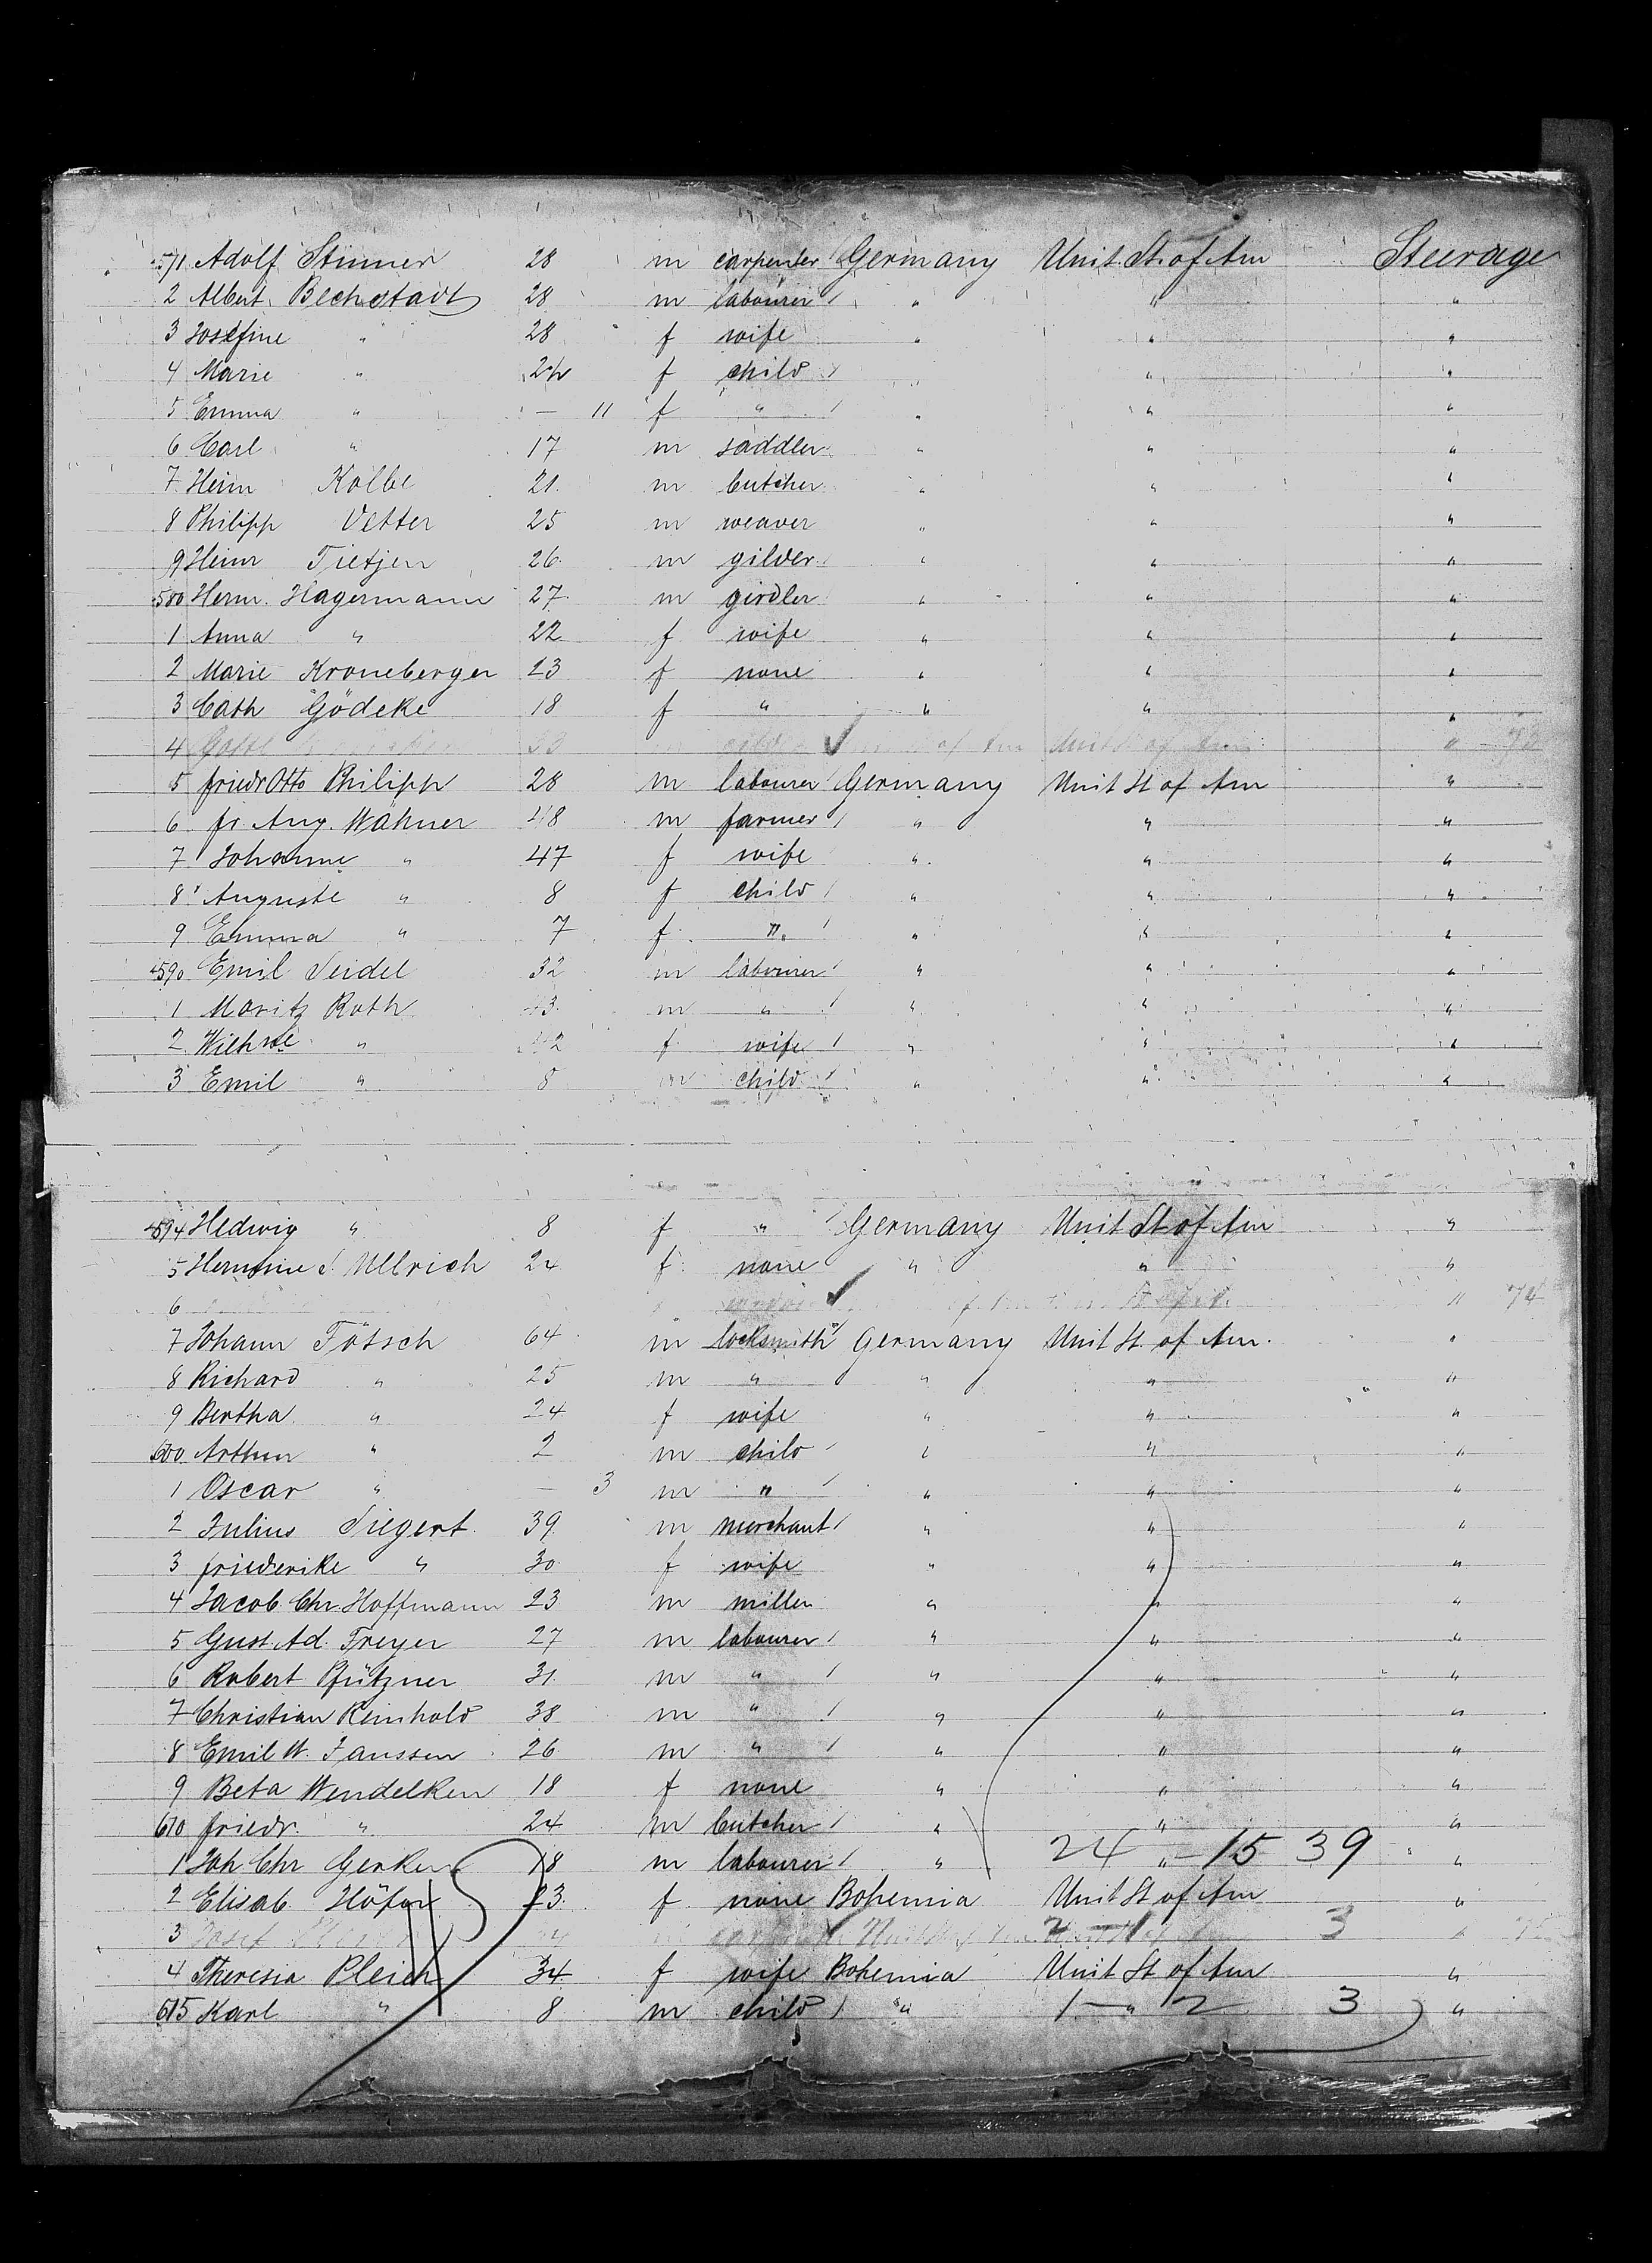 571 Adolf Stinner 28 m carpenter Germany Unit. St. of Am Steerage
2 Albert Bechstadt 28 m labourer " " "
3 Josefine " 28 f wife " " "
4 Marie " f child " " "
5 Emma " — 11 f " " " "
6 Carl " 17 m saddler " " "
7 Heinr Kolbe 21 m butcher " " "
8 Philipp Vetter 25 m weaver " " "
9 Heinr Tietjen 26 m gilder " " "
580 Herm. Hagermann 27 m girdler " " "
1 Anna " 22 f wife " " "
2 Marie Kroneberger 23 f none " " "
3 Cath Gödeke 18 f " " " "
4 Gottl 33 of Am Unit St of Am "
5 friedr Otto Philipp 28 m labourer Germany Unit St of Am "
6 fr. Aug. Wähner 48 m farmer " " "
7 Johanne " 47 f wife " " "
8 Auguste " 8 f child " " "
9 Emma " 7 f " " " "
590 Emil Seidel 32 m labourer " " "
1 Moritz Roth 43 m " " " "
2 Wilhne " 42 f wife " " "
3 Emil " 8 m child " " "
594 Hedwig " 8 f " Germany Unit St of Am "
5 Hermine S. Ullrich 24 f none " " "
6 " 74
7 Johann Tötsch 64 m locksmith Germany Unit St. of Am. "
8 Richard " 25 m " " " "
9 Bertha " 24 f wife " " "
600 Arthur " 2 m child " " "
1 Oscar " — 3 m " " " "
2 Julius Siegert 39 m merchant " " "
3 friederike " 30 f wife " " "
4 Jacob Chr. Hoffmann 23 m miller " " "
5 Gust. Ad. Freyer 27 m labourer " " "
6 Robert Pfützner 31 m " " " "
7 Christian Reinhold 38 m " " " "
8 Emil W. Janssen 26 m " " " "
9 Beta Wendelken 18 f none " " "
610 friedr. " 24 m butcher " " "
1 Joh Chr Gerken 18 m labourer " 24 " 15 39 "
2 Elisab. Höfer 23 f none Bohemia Unit St of Am "
3 Josef 3 "
4 Theresia Pleich 34 f wife Bohemia Unit St of Am "
615 Karl " 8 m child " 1 — " 2 3 "